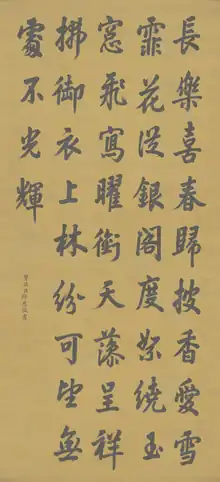 長樂喜春歸披香愛雪
霏花從銀閣度絮繞玉
窓飛寫曜銜天藻呈祥
拂御衣上林紛可望無
處不光輝